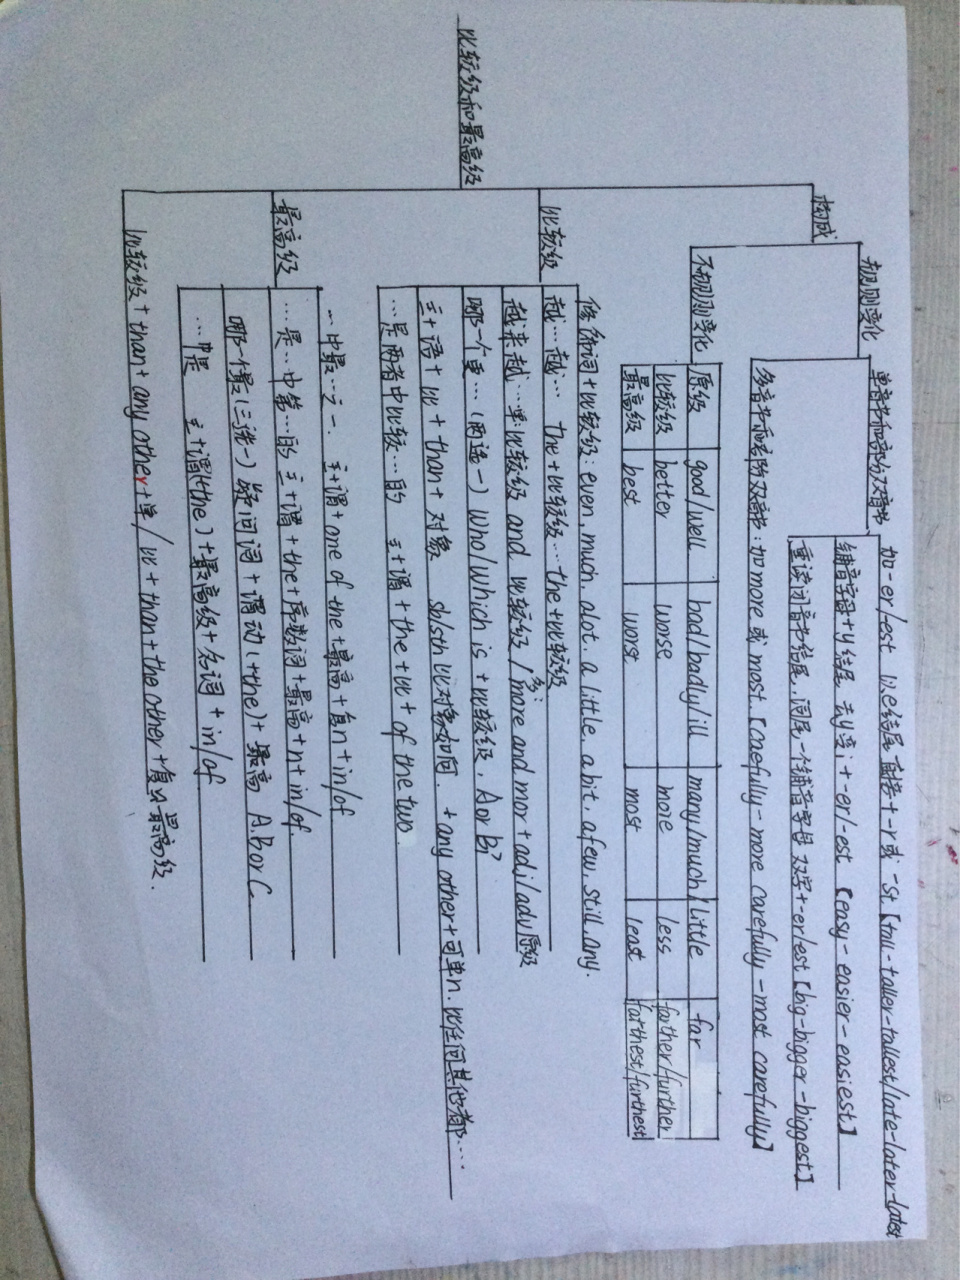 比较级和最高级
构成
规则变化
单音节和部分双音节
加-er/-est 以e结尾直接+-r或-st【tall-taller-tallest/late-later-latest
辅音字母+y结尾 去y变i+-er/-est【easy-easier-easiest】
重读闭音节结尾,词尾一个辅音字母 双写+-er/est【big-bigger-biggest】
多音节和部分双音节:加more或most.【caefully-more carefully-most carefully】
不规则变化
原级 good/well bad/badly/ill many/much little far
比较级 better worse more less farther/further
最高级 best worst most least farthest/furthest
比较级
修饰词+比较级:even, much, alot, a little, a bit, a few, still, any.
越…越… the+比较级…the+比较级
越来越… 比较级 and 比较级/more and mor+adj/adv原级
哪一个更…(两选一) Who/Which is +比较级, A or B?
主+语+比+than+对象 sb/sth比对象如何. +any other+可单n.比任何其他都…
…是两者中比较…的 主+谓+the+比+of the two
最高级
…中最…之一. 主+谓+one of the+最高+复n+in/of
…是…中第…的 主+谓+the+序数词+最高+n+in/of
哪个最(三选一) 疑问词+谓动(+the)+最高 A.B or C.
…中是 主+谓(+the)+最高级+名词+in/of
比较级+than+any other+单/比+than+the other+复 最高级.